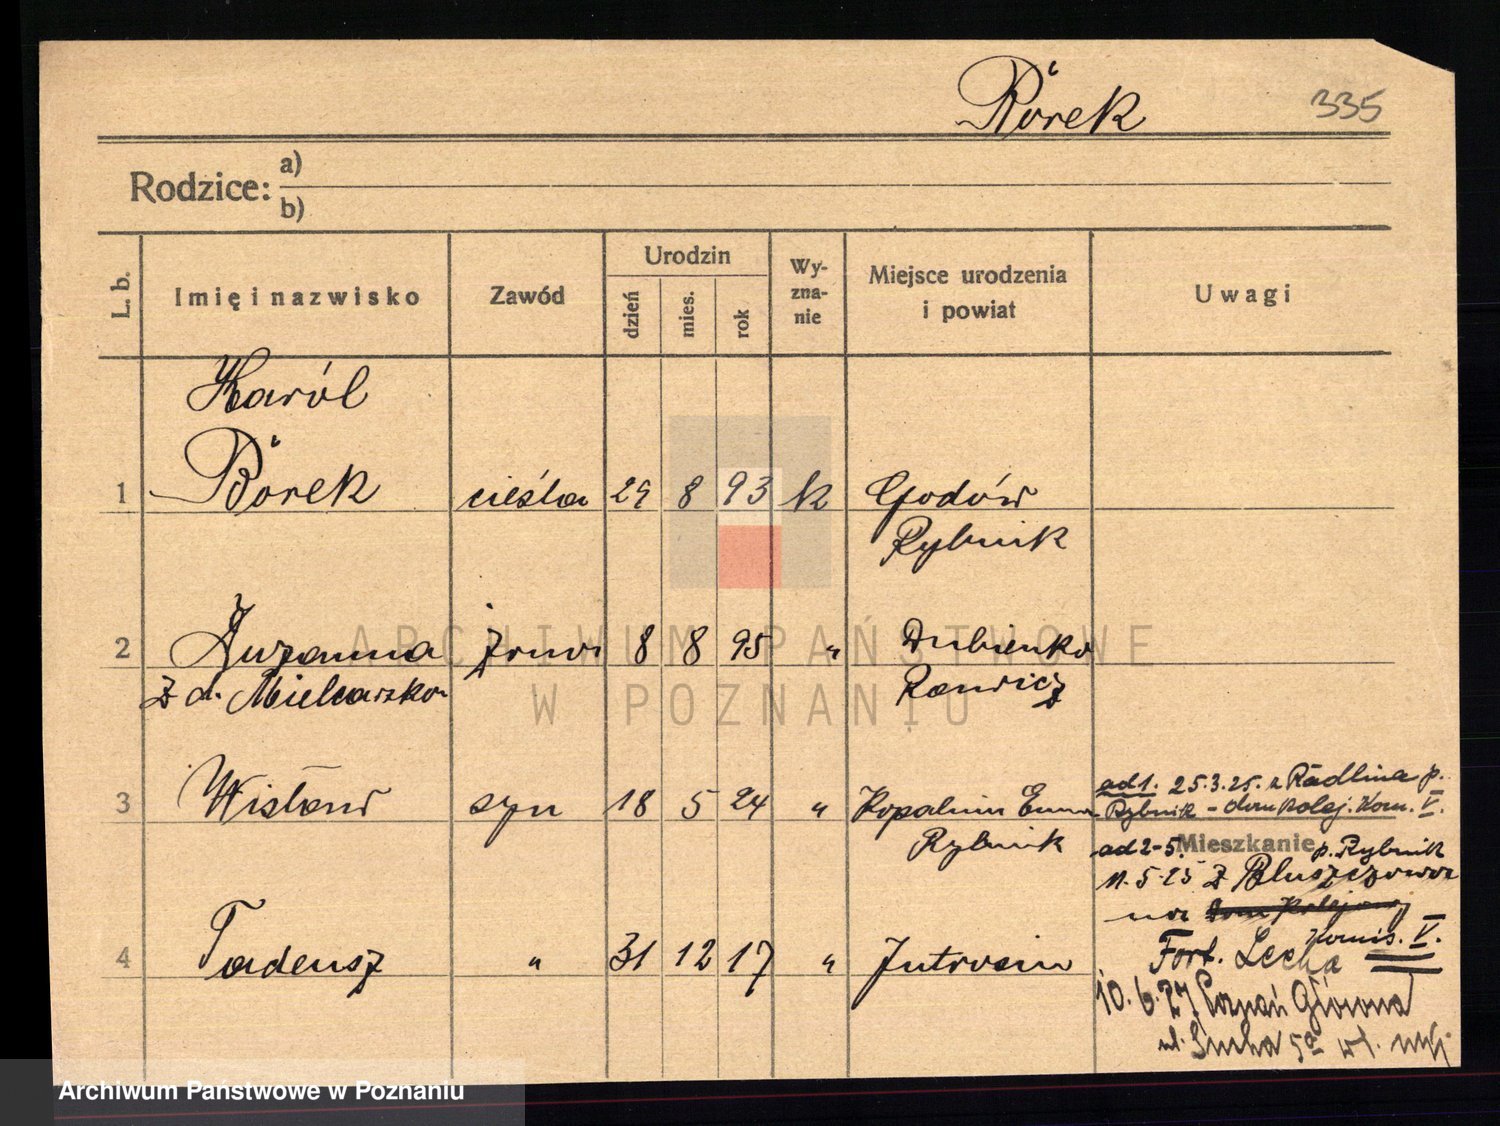 Börek 335
Rodzice: a)
b)
L. b. Imię i nazwisko Zawód Urodzin dzień mies. rok Wyznanie Miejsce urodzenia i powiat Uwagi
Karól
1 Börek cieśla 29 8 93 k Godów
Rybnik
2 Zuzanna żona 8 8 95 " Dubienko
z d. Mielcarzka Rawicz
3 Wisław syn 18 5 24 " Kopalnia Emma
Rybnik
ad 1. 25.3.25. z Radlina p.
Rybnik - dom kolej. Kom. V.
Mieszkanie
ad 2-5. p. Rybnik
11.5.25 z Pluszczowa
na Dom Kolejowy
4 Tadeusz " 31 12 17 " Jutrosin
Komis. V.
Fort. Lecha
10.6.27 Poznań Główna
ul. Sucha 5a
ARCHIWUM PAŃSTWOWE
W POZNANIU
Archiwum Państwowe w Poznaniu